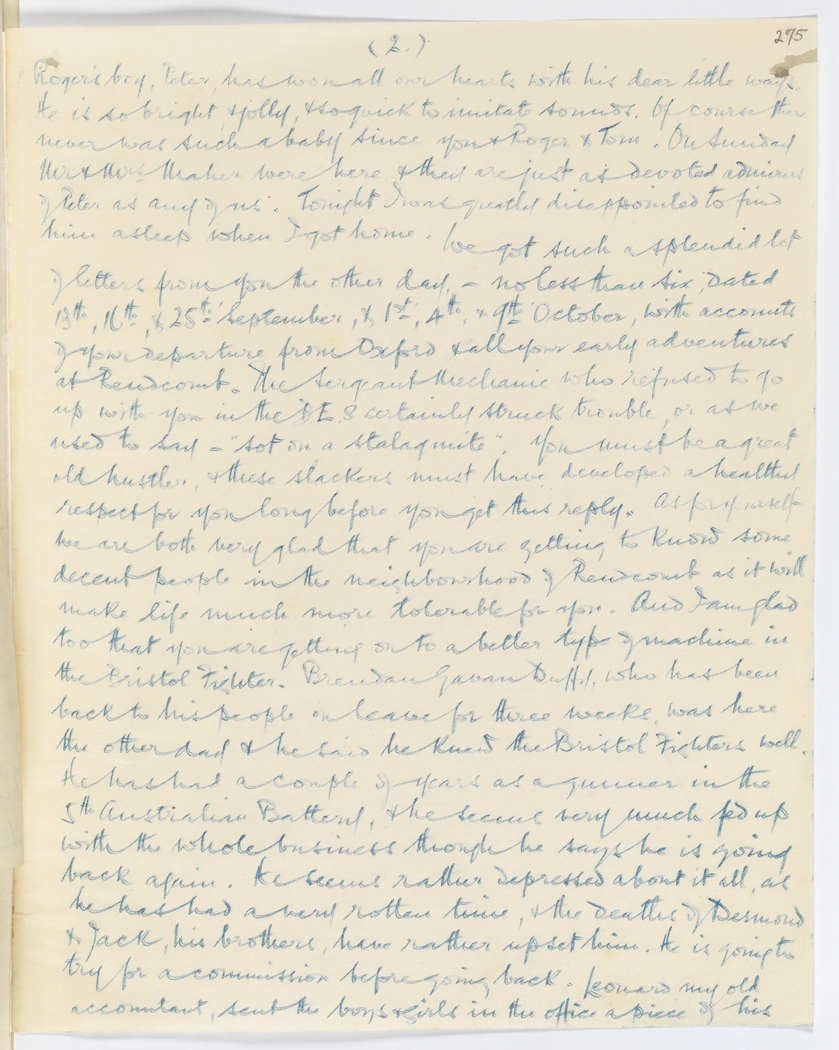 275
(2.)
Roger's boy, Peter, has won all our hearts with his dear little ways.
He is so bright, & jolly, & so quick to imitate sounds. Of course there
never was such a baby since you & Roger & Tom. On Sunday
Mr & Mrs Maher were here & they are just as devoted admirers
of Peter as any of us. Tonight I was greatly disappointed to find
him asleep when I got home. We got such a splendid lot
of letters from you the other day, - no less than six, dated
13th, 16th, & 25th September, & 1st, 4th, & 9th October, with accounts
of your departure from Oxford & all your early adventures
at Rendcomb. The Sergeant Mechanic who refused to go
up with you in the B.E. 8 certainly struck trouble, or as we
used to say - "sot on a stalagmite". You must be a great
old hustler, & these slackers must have developed a healthy
respect for you long before you get this reply. As for myself
we are both very glad that you are getting to know some
decent people in the neighbourhood of Rendcomb as it will
make life much more tolerable for you. And I am glad
too that you are getting on to a better type of machine in
the Bristol Fighter. Brendan Gavan Duffy, who has been
back to his people on leave for three weeks, was here
the other day & he said he knew the Bristol Fighters well.
He has had a couple of years as a gunner in the
5th Australian Battery, & he seems very much fed up
with the whole business though he says he is going
back again. He seems rather depressed about it all, as
he has had a very rotten time, & the deaths of Desmond
& Jack, his brothers, have rather upset him. He is going to
try for a commission before going back. Leonard my old
accountant, sent the boys & girls in the office a piece of his